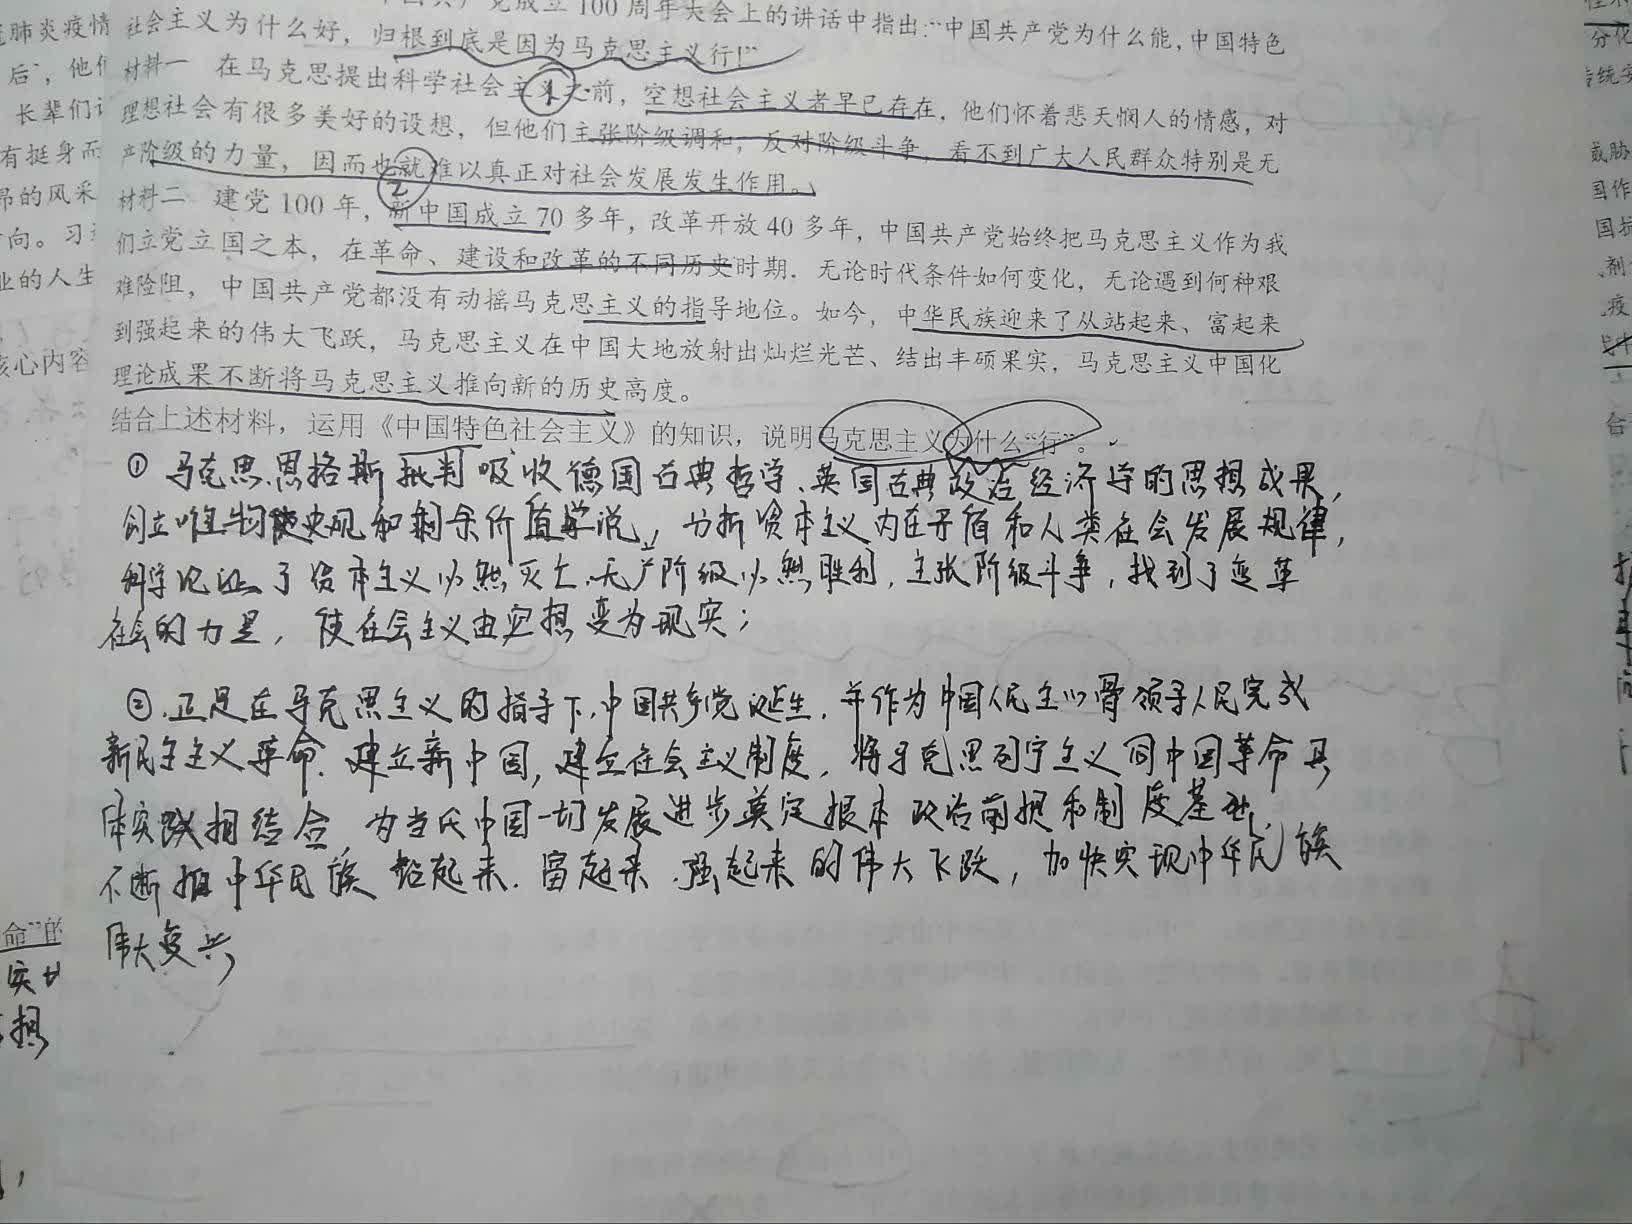 中国共产党成立100周年大会上的讲话中指出:“中国共产党为什么能,中国特色
社会主义为什么好,归根到底是因为马克思主义行!”
材料一 在马克思提出科学社会主义之前,空想社会主义者早已存在,他们怀着悲天悯人的情感,对
理想社会有很多美好的设想,但他们主张阶级调和,反对阶级斗争,看不到广大人民群众特别是无
产阶级的力量,因而也就难以真正对社会发展发生作用。
材料二 建党100年,新中国成立70多年,改革开放40多年,中国共产党始终把马克思主义作为我
们立党立国之本,在革命、建设和改革的不同历史时期,无论时代条件如何变化,无论遇到何种艰
难险阻,中国共产党都没有动摇马克思主义的指导地位。如今,中华民族迎来了从站起来、富起来
到强起来的伟大飞跃,马克思主义在中国大地放射出灿烂光芒、结出丰硕果实,马克思主义中国化
理论成果不断将马克思主义推向新的历史高度。
结合上述材料,运用《中国特色社会主义》的知识,说明马克思主义为什么“行”。
①马克思.恩格斯批判吸收德国古典哲学、英国古典政治经济学的思想成果,
创立唯物史观和剩余价值学说,分析资本主义内在矛盾和人类社会发展规律,
科学论证了资本主义必然灭亡.无产阶级必然胜利,主张阶级斗争,找到了变革
社会的力量,使社会主义由空想变为现实;
②.正是在马克思主义的指导下,中国共产党诞生,并作为中国人民主心骨领导人民完成
新民主主义革命.建立新中国,建立社会主义制度,将马克思列宁主义同中国革命具
体实践相结合,为当代中国一切发展进步奠定根本政治前提和制度基础,
不断推中华民族站起来.富起来.强起来的伟大飞跃,加快实现中华民族
伟大复兴
肺炎疫情
后”,他们
长辈们
有挺身而
昂的风采
向。习
业的人生
核心内容
命”的
实
想
分化
传统
国作
国抗
疫
合